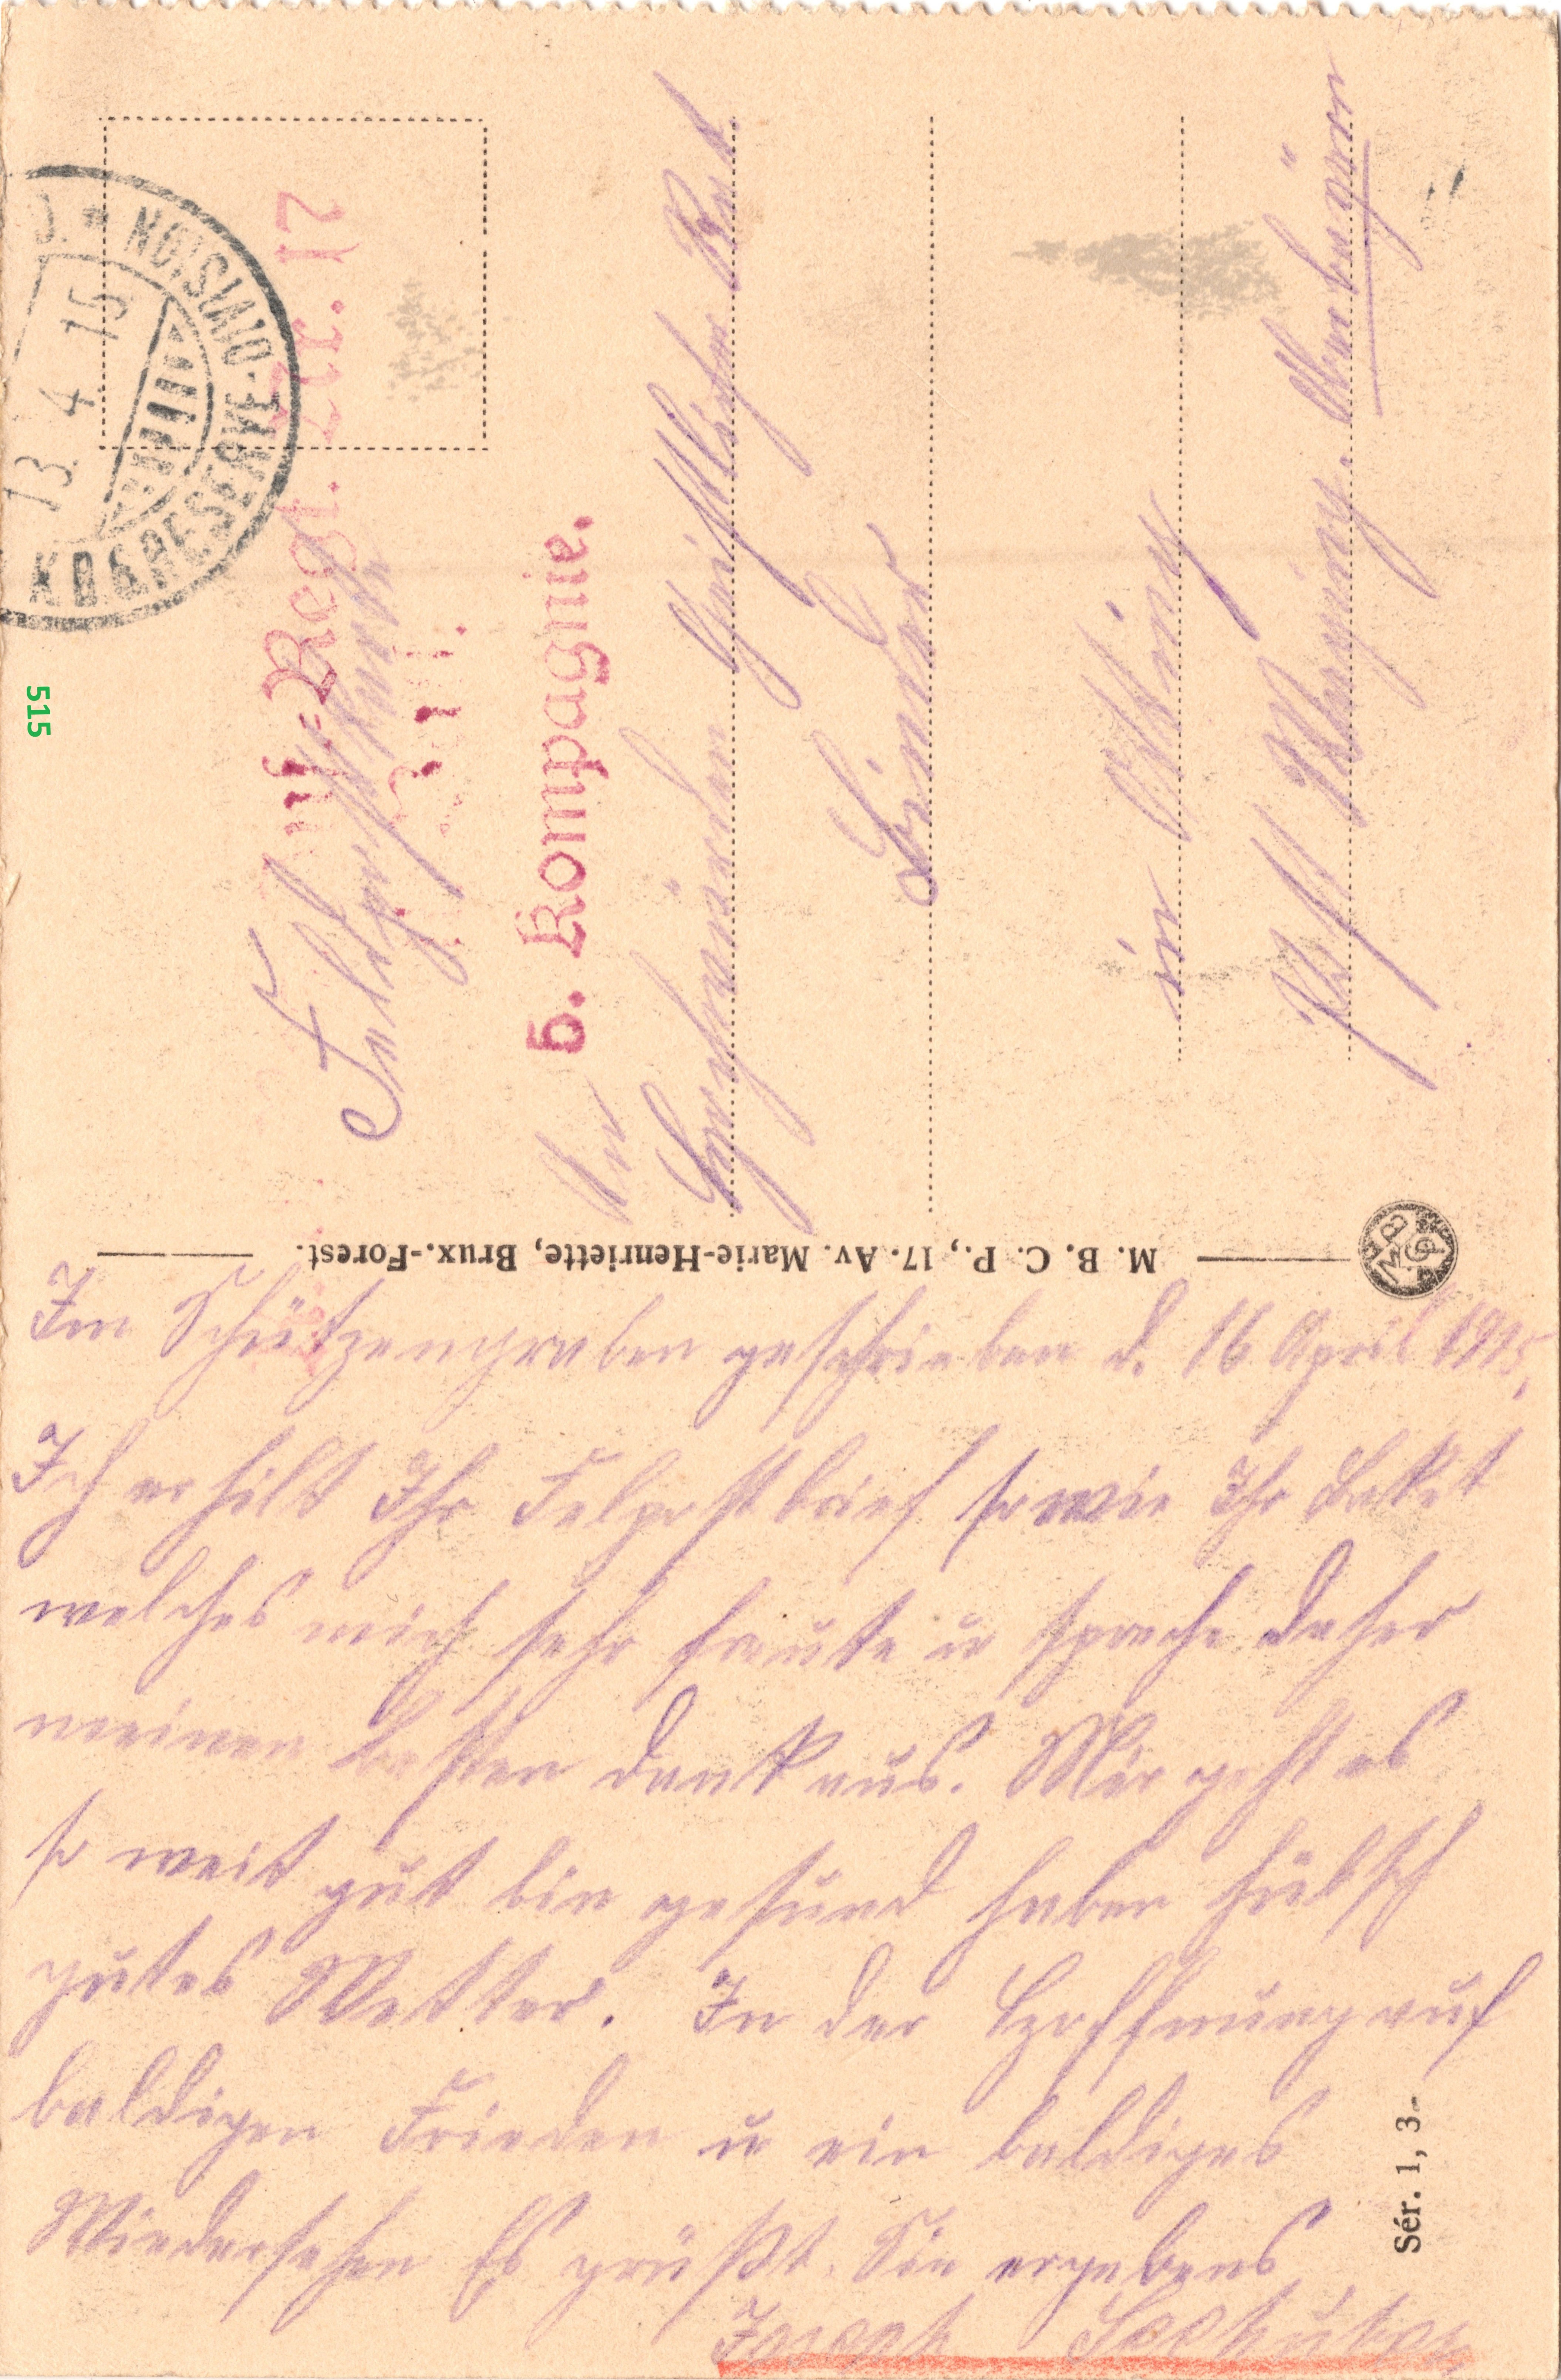 K.B. 6. RESERVE-DIVISION
13 4 15
Inf.-Regt. Nr. 17
5. Kompagnie.
Feldpostkarte
An
Hochwürden Geistlicher Rat
Linder
in Ötting
Post Oberbayern
M. B. C. P., 17. Av. Marie-Henriette, Brux.-Forest.
515
Im Schützengraben geschrieben d. 16 April 1915,
Ich erhilt Ihr Felpostbrief sowie Ihr Paket
welches mich sehr freute u spreche daher
meinen besten Dank aus. Mir geht es
so weit gut bin gesund haben hübsch
gutes Wetter. In der Hoffnung auf
baldigen Frieden u ein baldiges
Wiedersehen Es grüßt Sie ergebens
Joseph Seehuber
Sér. 1, 3-